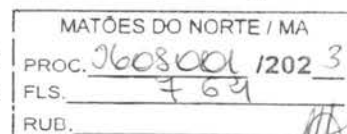 MATÕES DO NORTE / MA
PROC. 2608001 /202 3
FLS. 764
RUB.